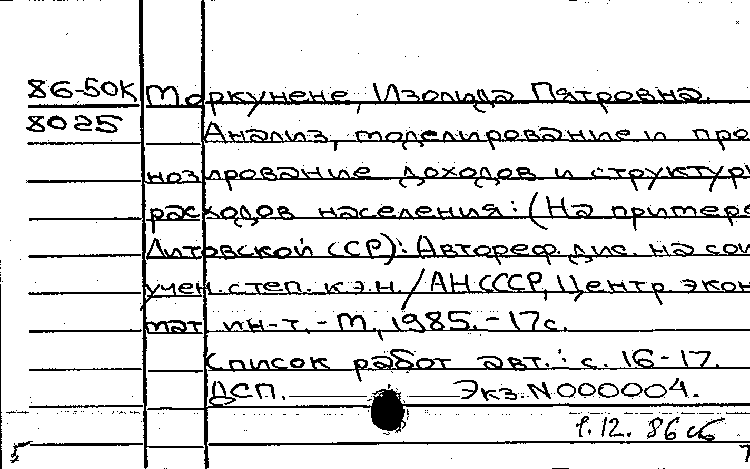 86-50К Моркунене, Изолида Пятровна.
8025 Анализ, моделирование и про
нозирование доходов и структуры
расходов населения: (На примере
Литовской ССР): Автореф. дис. на сои
учен. степ. к.э.н. / АН СССР, Центр. экон
мат ин-т. - М., 1985. - 17с.
Список работ авт.: с. 16-17.
ДСП. Экз. N 000004.
1.12. 86
5 7